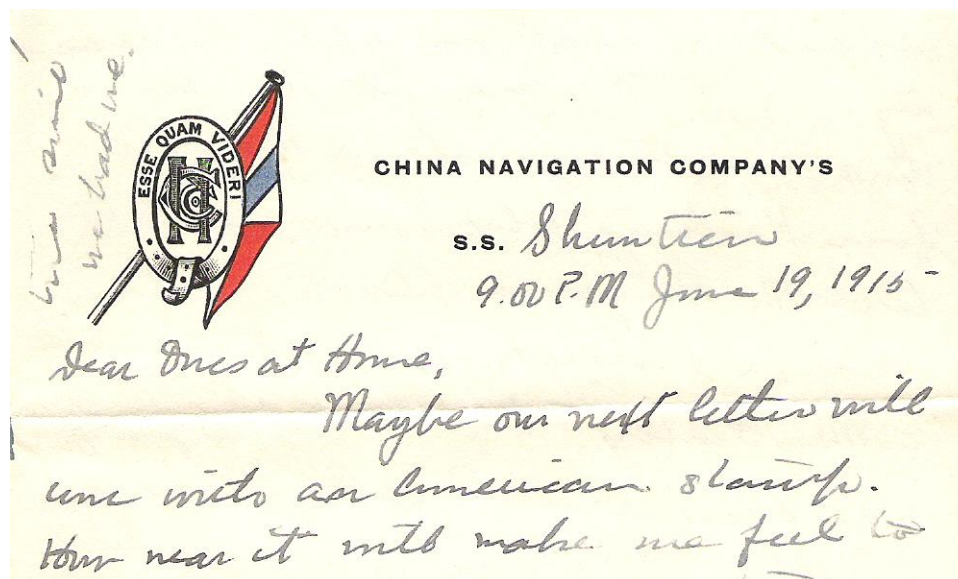 ESSE QUAM VIDERI
CHINA NAVIGATION COMPANY'S
S.S. Shuntien
9.00 P.M June 19, 1915
Dear Ones at Home,
Maybe our next letter will
come with an American stamp.
How near it will make me feel to
we had me.